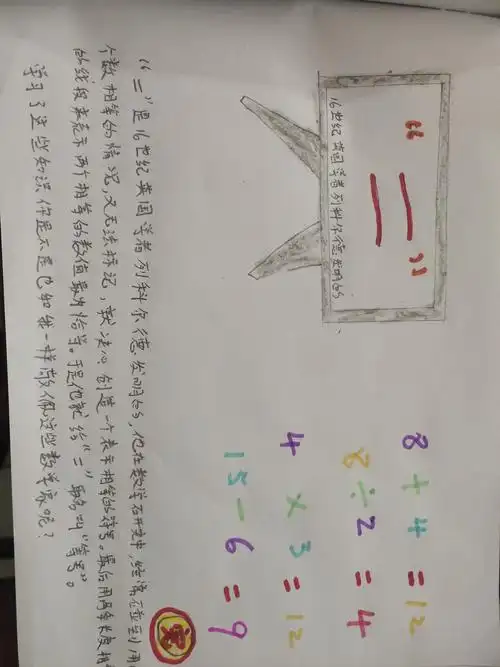 “=”
16世纪英国学者列科尔德发明的
8+4=12
8÷2=4
4×3=12
15-6=9
“=”是16世纪英国学者列科尔德发明的,他在数学研究中,经常碰到
个数相等的情况,又无法标记,就决心创造一个表示相等的符号。最后用两条长度相
的线段来表示两个相等的数值最为恰当。于是他就给“=”取名叫“等号”。
学习了这些知识你是不是也和我一样敬佩这些数学家呢?
奖